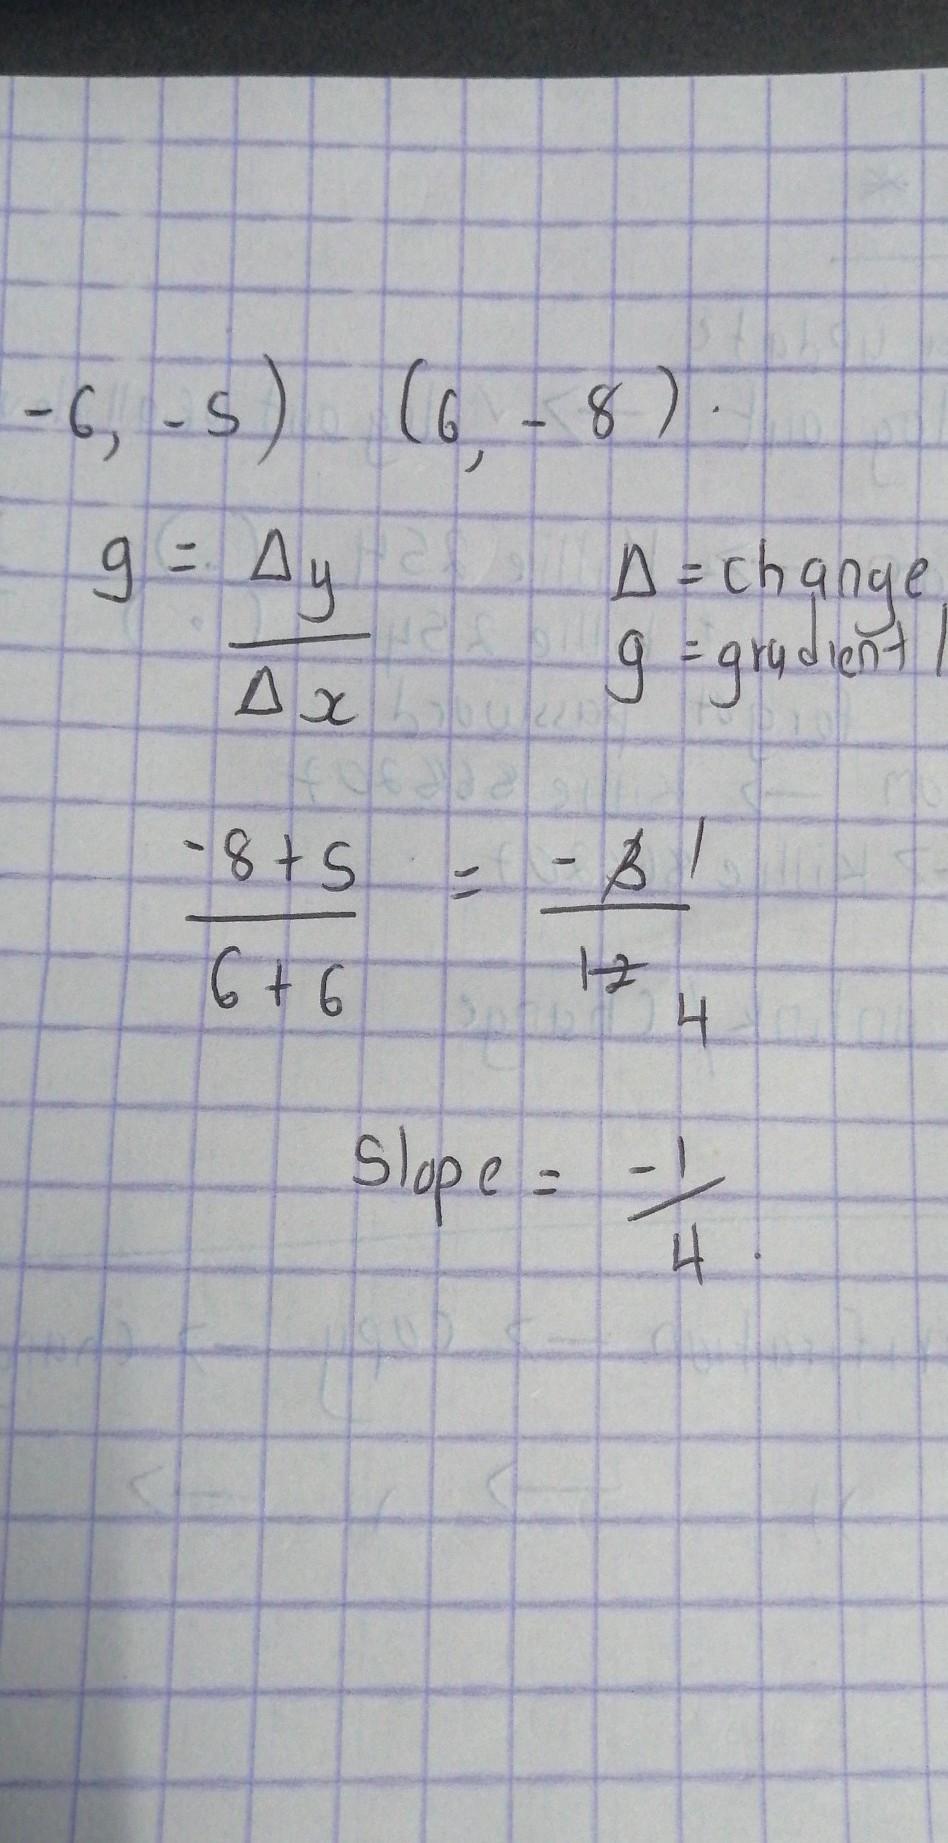 -6, -5) (6, -8).
g = Δy Δ = change
Δx g = gradient
-8+5 = -3 1
6+6 12 4
Slope = -1/4.